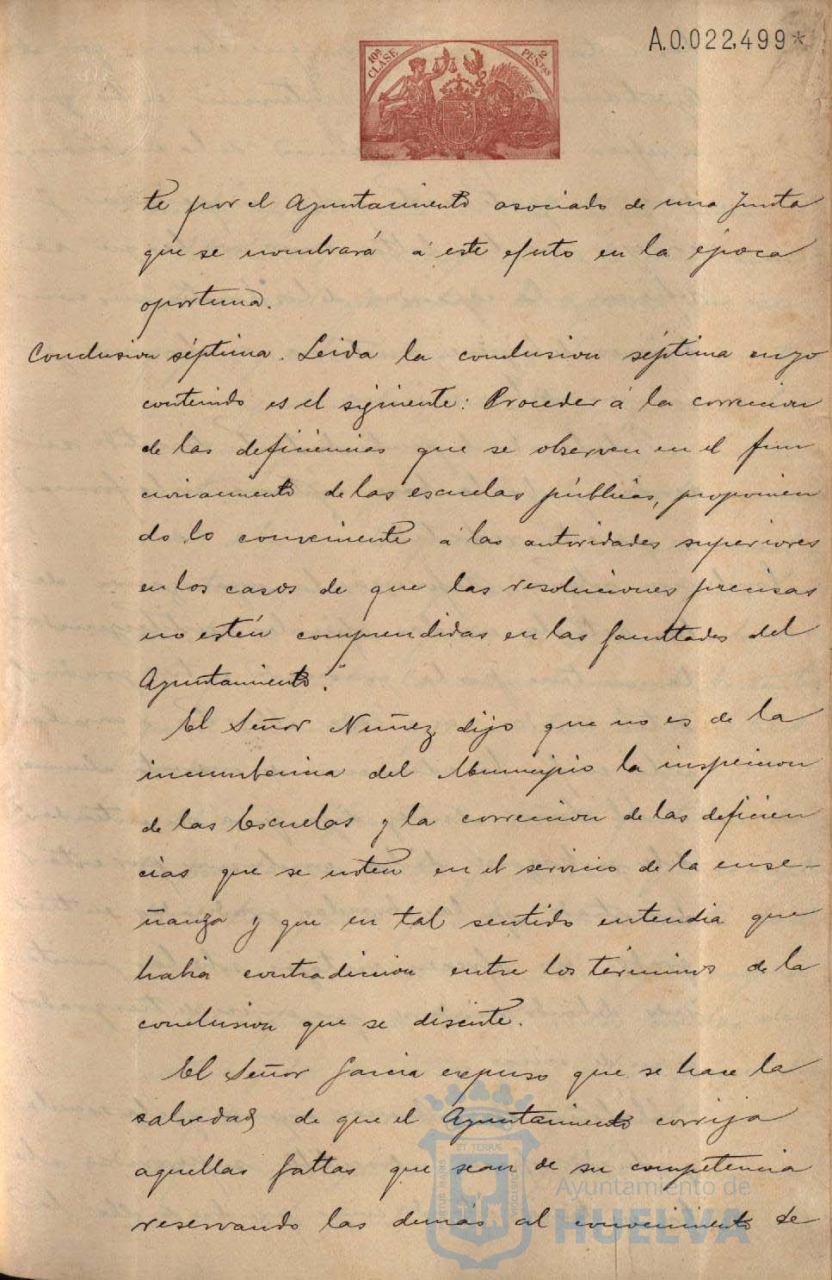 A.0.022,499*
10ª CLASE
2 PESETAS
te por el Ayuntamiento asociado de una Junta
que se nombrará á este efecto en la época
oportuna.
Conclusion séptima. Leida la conclusion séptima cuyo
contenido es el siguiente: Proceder á la correccion
de las deficiencias que se observen en el fun
cionamiento de las escuelas públicas, proponien
do lo conveniente á las autoridades superiores
en los casos de que las resoluciones precisas
no estén comprendidas en las facultades del
Ayuntamiento."
El Señor Nuñez dijo que no es de la
incumbencia del Municipio la inspeccion
de las Escuelas y la correccion de las deficien
cias que se noten en el servicio de la ense-
ñanza y que en tal sentido entendia que
habia contradiccion entre los términos de la
conclusion que se discute.
El Señor Garcia expuso que se hace la
salvedad de que el Ayuntamiento corrija
aquellas faltas que sean de su competencia
reservando las demás al conocimiento de
Ayuntamiento de
HUELVA